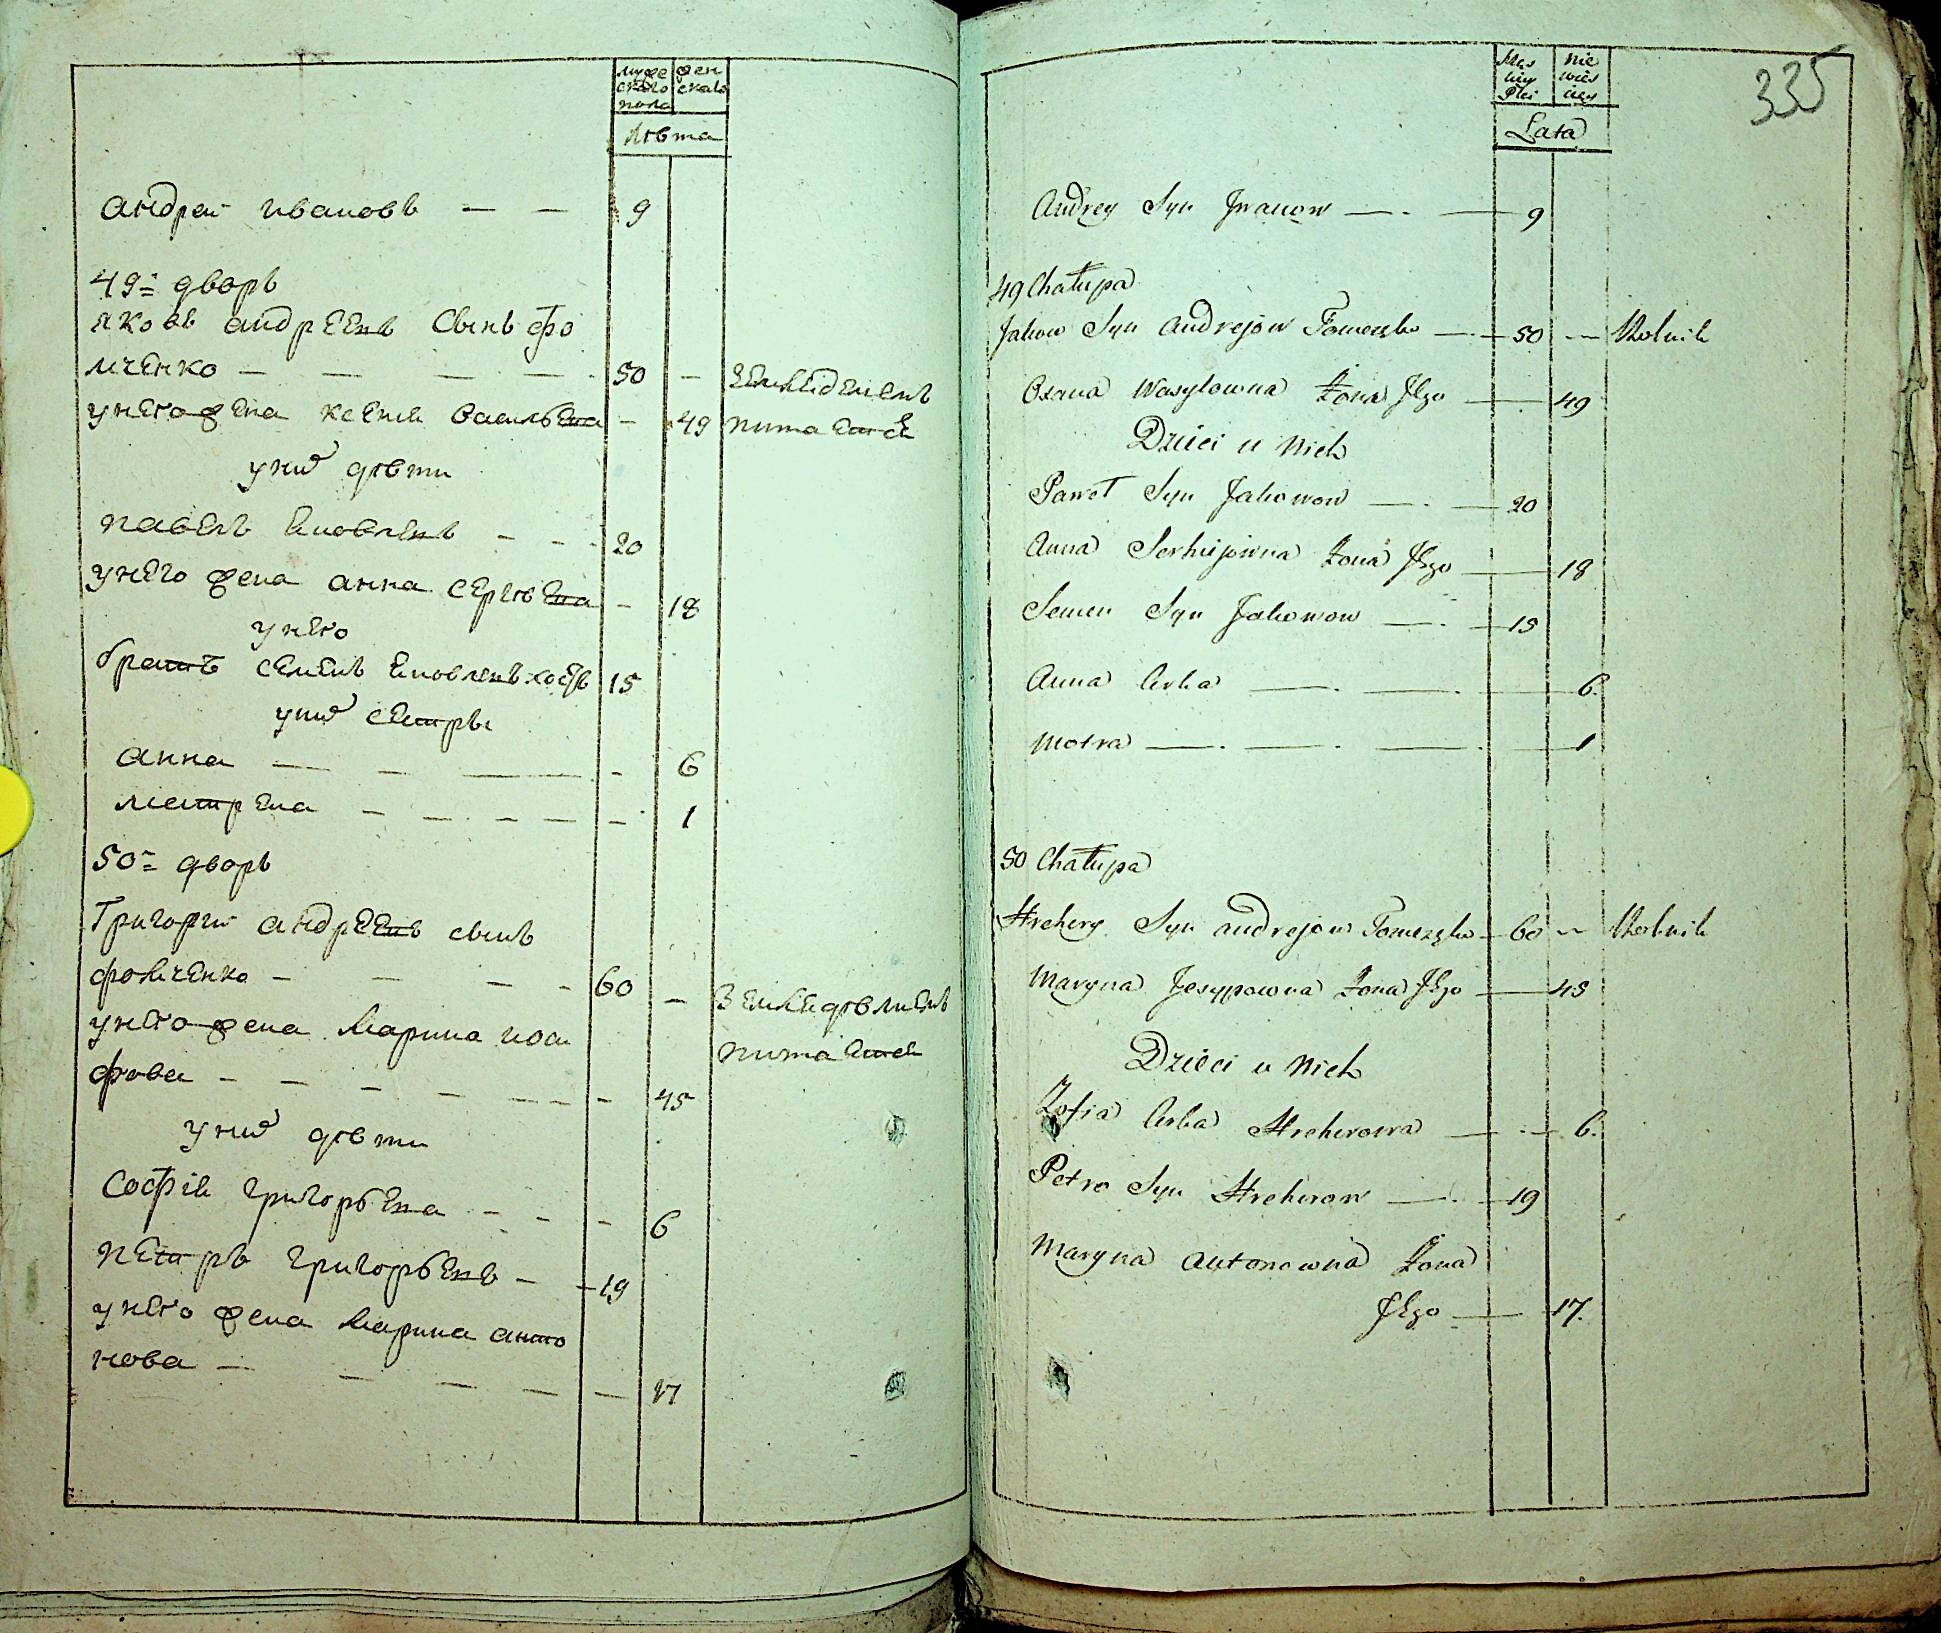 мужескаго пола
женскаго
лѣта
андрей ивановъ — — 9
49й дворъ
яковъ андреевъ сынъ фо
мченко — — — — 50 —
унего жена ксения васильева — 49
земледелиемъ
питается
уних дѣти
павелъ яковлевъ — — — 20
унего жена анна сергѣева — 18
унего
братъ семенъ яковлевъ холостъ 15
уних сестры
анна — — — — 6
матрена — — — — — 1
50й дворъ
Григорий андреевъ сынъ
фомченко — — — — 60 —
унего жена марина иоси
фова — — — — — — 45
земледѣлиемъ
питается
уних дѣти
Софія григорьева — — — 6
петръ григорьевъ — 19
унего жена марина анто
нова — — — — — 17
335
Męs
kiey
Płci
Nie
wies
ciey
Lata
Andrey Syn Jwanow — — 9
49 Chałupa
Jakow Syn Andrejow Fomczeko — 50 — Rolnik
Oxana Wasylowna Żona Jego — 49
Dzieci u Nich
Paweł Syn Jakowow — 20
Anna Serhijowna Żona Jego — 18
Semen Syn Jakowow — 15
Anna Corka — — 6.
Motra — — — 1
50 Chałupa
Hrehery Syn Andrejow Fomczeko — 60 — Rolnik
Maryna Jesypowna Żona Jego — 45
Dzieci u Nich
Zofia Corka Hrehorowa — 6.
Petro Syn Hrehorow — 19
Maryna Antonowna Żona
Jego — 17.